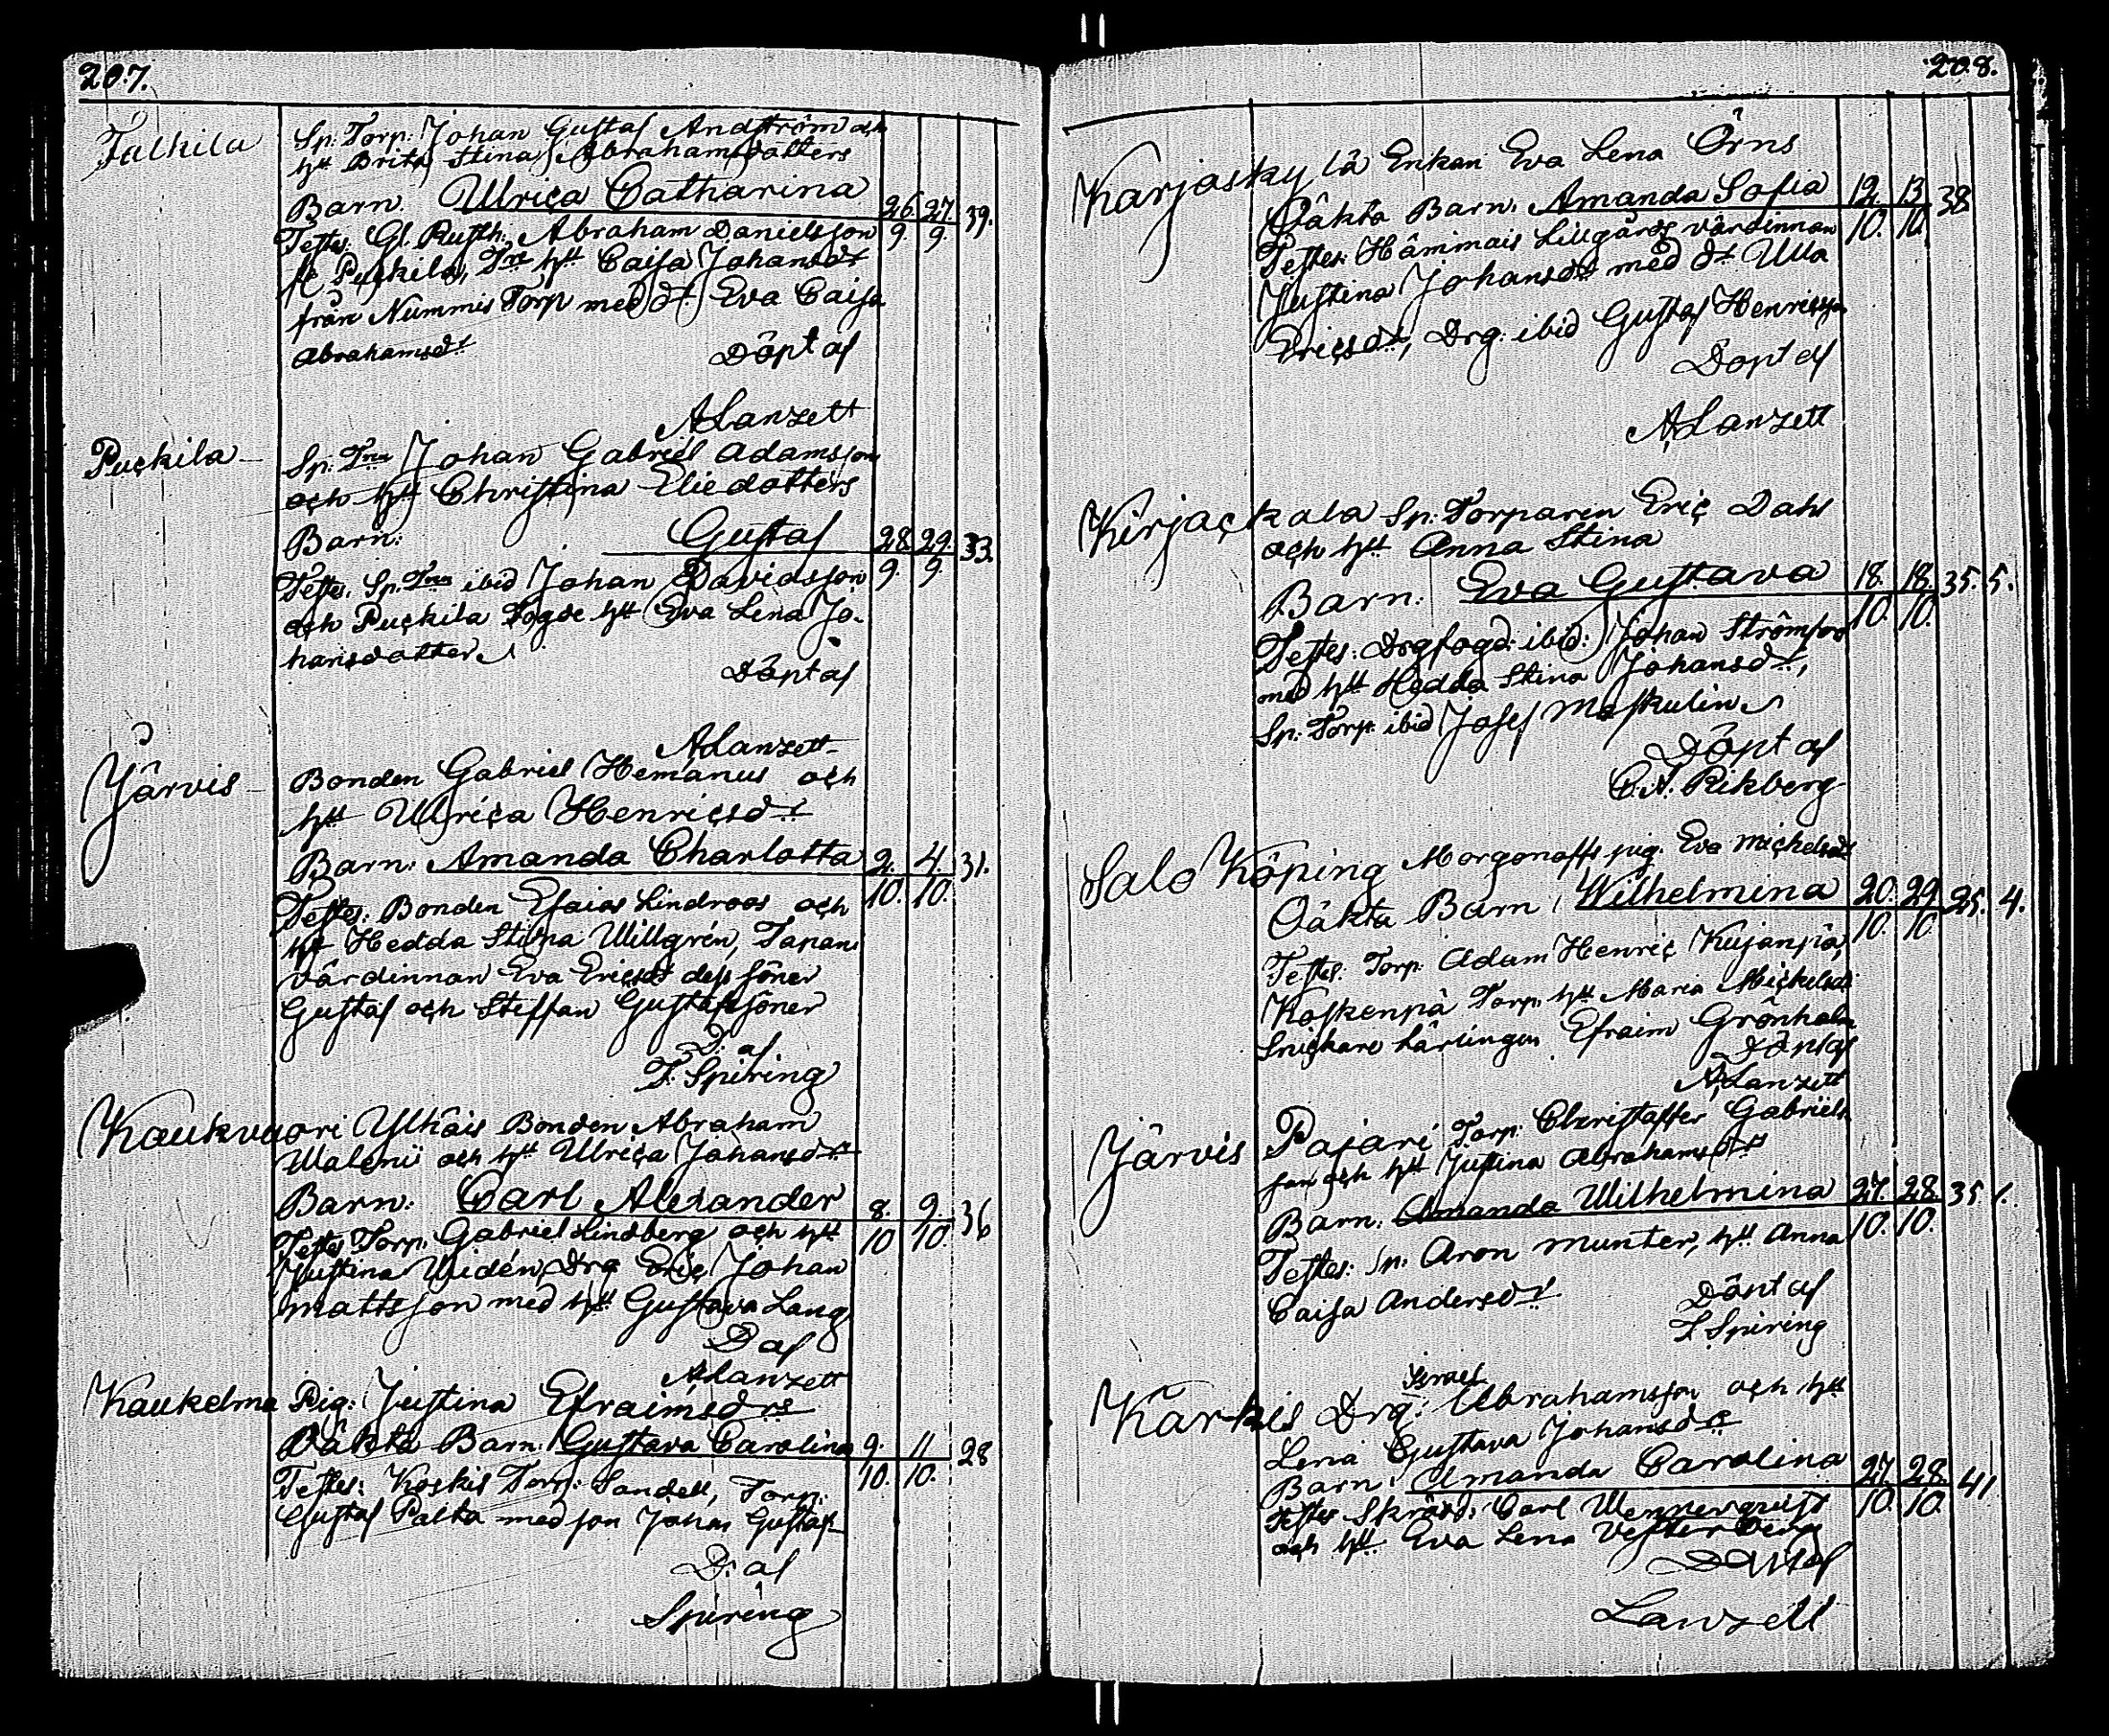 207.
Talkila Sp: Torp: Johan Gustaf Andström och
hu Brita Stina Abrahamsdotters
Barn. Ulrica Catharina 26. 27. 39.
Testes: Gl. Rusth: Abraham Danielsson 9. 9.
fr Puckila, hu Caisa Johansdr
från Nummis Torp med dr Eva Caisa
Abrahamsdr Döpt af
A Lanzett
Puckila Sp: Johan Gabriel Adamsson
och hu Christina Eliedotters
Barn: Gustaf 28. 29. 33.
Testes. Sp. ibid Johan Davidsson 9. 9.
och Puckila Fogde hu Eva Lena Jo-
hansdotter
Döpt af
A Lanzett
Järvis Bonden Gabriel Hemanus och
hu Ulrica Henricsdr
Barn: Amanda Charlotta 2. 4. 31.
Testes: Bonden Esaias Lindroos och 10. 10.
hu Hedda Stina Willgrén, Tapani
värdinnan Eva Ericsdr dess söner
Gustaf och Steffan Gustafssöner
D: af
F. Spiring
Kaukvuori Ylhäis Bonden Abraham
Waleni och hu Ulrica Johansdrs
Barn: Carl Alexander 8. 9. 36
Testes Torp: Gabriel Lindberg och hu 10 10.
Justina Widén, Drg Eric Johan
Mattsson med hu Gustava Lang
D af
A Lanzett
Kaukelma Pig: Justina Efraimsdrs
Oäkta Barn: Gustava Carolina 9. 11. 28
Testes: Koskis Torp: Sandell, Torp: 10. 10.
Gustaf Palta med son Johan Gustaf
D: af
Spiring
208.
Karjaskylä Enkan Eva Lena Örns
Oäkta Barn: Amanda Sofia 12. 13 38
Testes: Hämmäis Lillgårds värdinnan 10. 10.
Justina Johansdr med dr Ulla
Ericsdr, Drg: ibid Gustaf Henricsson
Döpt af
A Lanzett
Kirjackala Sp: Torparen Eric Dahl
och hu Anna Stina
Barn: Eva Gustava 18. 18. 35. 5.
Testes: Drgfogd: ibid: Johan Strömfors 10. 10.
med hu Hedda Stina Johansdr,
Sp: Torp: ibid Josef Maskulin
Döpt af
C. A. Rikberg
Salo Köping Morgonoffs pig. Eva Michelsdr
Oäkta Barn: Wilhelmina 20. 29. 25. 4.
Testes: Torp: Adam Henric Kujanpä, 10. 10
Koskenpä Torp: hu Maria Mickelsdr
Snickare lärlingen Efraim Grönholm
Döpt af
A Lanzett
Järvis Pajari Torp: Christoffer Gabriels-
son och hu Justina Abrahamsdrs
Barn: Amanda Wilhelmina 27. 28. 35 1.
Testes: Sp. Aron Munter, hu Anna 10. 10.
Caisa Andersdr Döpt af
F. Spiring
Israel
Karkis Drg: Abrahamsson och hu
Lena Gustava Johansdrs
Barn: Amanda Carolina 27. 28. 41
Testes Skrädd: Carl Wennerqvist 10. 10.
och hu Eva Lena Vesterberg
Döpt af
Lanzett